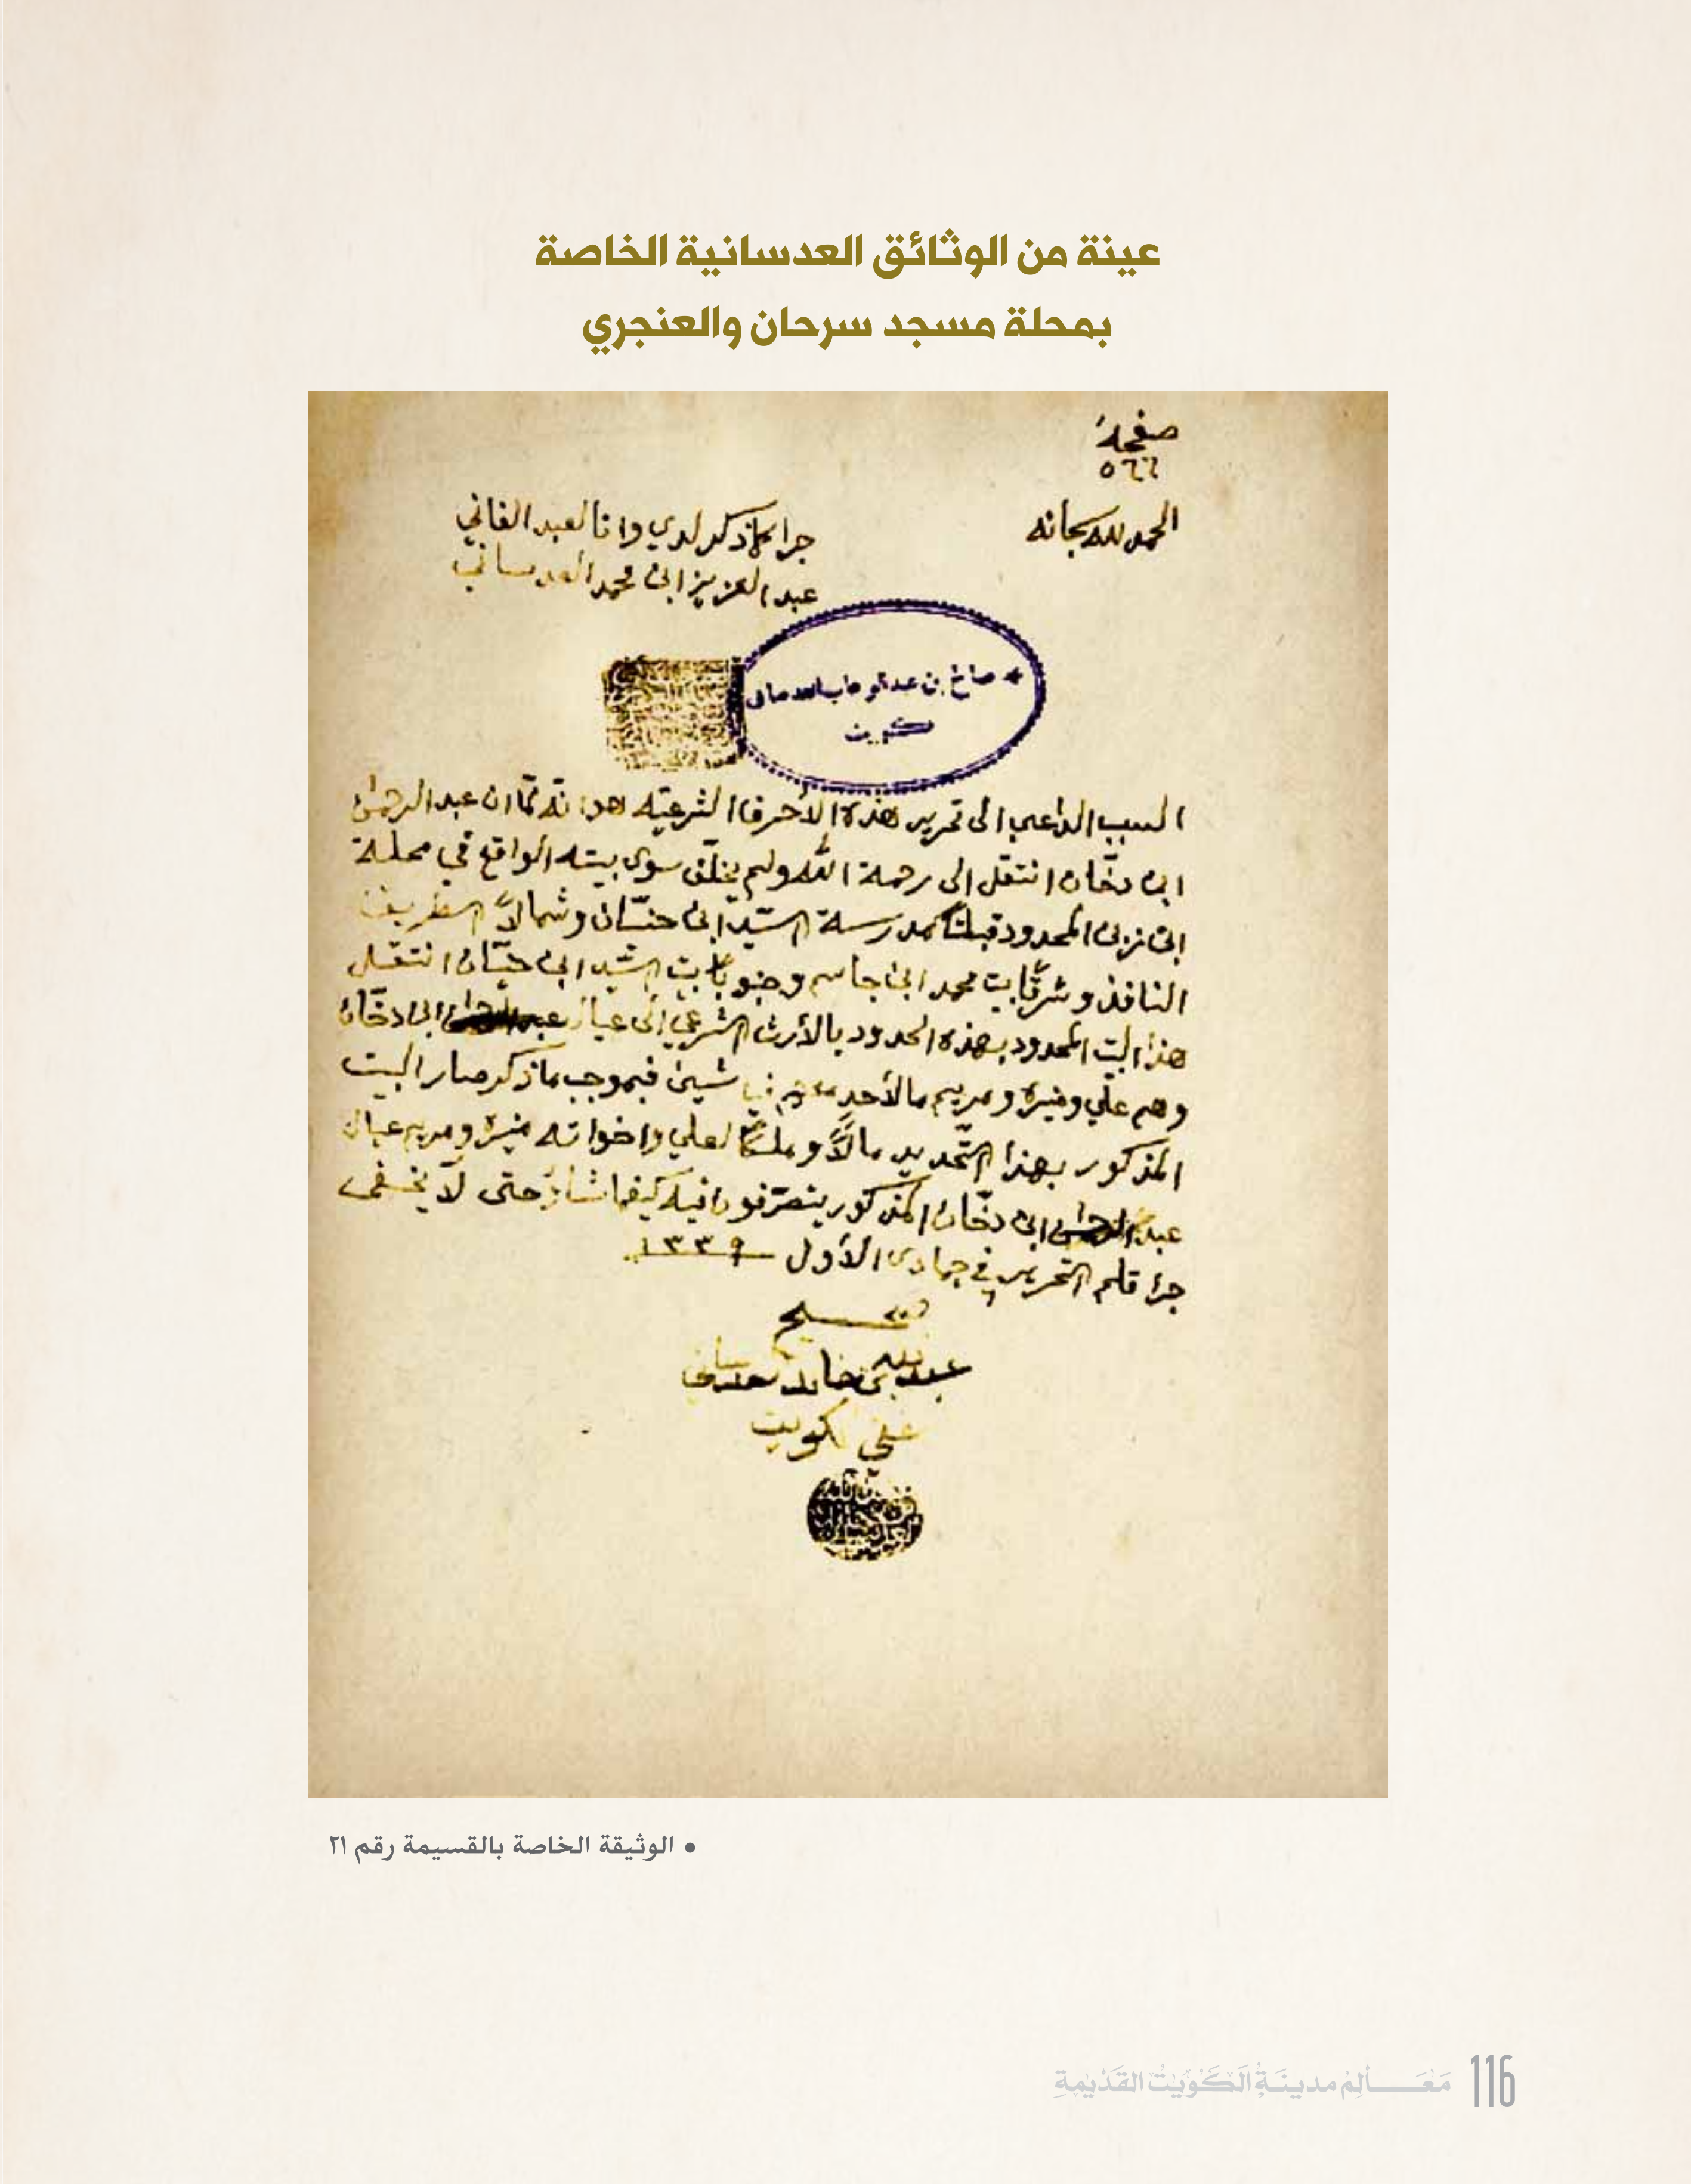 عينة من الوثائق العدسانية الخاصة
بمحلة مسجد سرحان والعنجري
صفحة
٥٦٦
الحمد لله سبحانه
جرا ما ذكر لدي وانا العبد الفاني
عبد العزيز ابن محمد العدساني
صالح بن عبد الوهاب العدساني
كويت
السبب الداعي الى تحرير هذه الأحرف الشرعيّه هو انّه لمّا ان عبد الرحمن
ابن دخّان انتقل الى رحمة الله ولم يخلّف سوى بيته الواقع في محلة
ابن المحدود قبلتاً مدرسة السّيد ابن وشمالاً الطريق
النافذ وشرقاً بيت محمد ابن جاسم وجنوباً بيت السّيد ابن انتقل
هذا البيت المحدود بهذه الحدود بالأرث الشرعي الى عيال عبد الرحمن ابن دخّان
وهم علي ومنيرة ومريم ما لأحد شين فبموجب ما ذكر صار البيت
المذكور بهذا التّحديد مالاً وملكاً لعلي واخواته منيرة ومريم عيال
عبد الرحمن ابن دخّان المذكور يتصرّفون فيه كيفما شاؤ حتى لا يخفى
جرا قلم التحرير في ٦ جمادى الأول ١٣٣٩
صحيح
عبد الله بن خالد العدساني
الكويت
• الوثيقة الخاصة بالقسيمة رقم ٢١
مَعَالِمُ مدينَةِ الكُوَيْتُ القَدْيمةِ 116